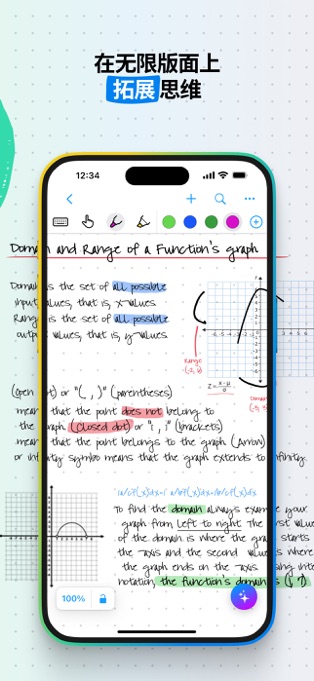 在无限版面上
拓展思维
12:34
Domain and Range of a Function's graph
Domain is the set of all possible
input values, that is, x-values
Range is the set of all possible
output values, that is, y-values
Range
Domain
(open dot) or "( , )" (parentheses)
means that the point does not belong to
the graph. (closed dot) or "[ , ]" (brackets)
means that the point belongs to the graph (Arrow)
or infinity symbo means that the graph extends to infinity.
To find the domain always examine your
graph from left to right The first value
of the domain is where the graph starts
the -axis and the second value is where
the graph ends on the -axis using
notation, the function's domain is
100%